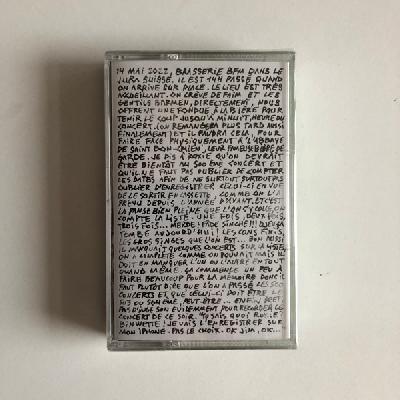 14 MAI 2022, BRASSERIE BFM DANS LE
JURA SUISSE. IL EST 14H PASSÉ QUAND
ON ARRIVE SUR PLACE. LE LIEU EST TRÈS
ACCUEILLANT. ON CRÈVE DE FAIM ET LES
GENTILS BARMEN, DIRECTEMENT, NOUS
OFFRENT UNE FONDUE À LA BIÈRE POUR
TENIR LE COUP JUSQU'À MINUIT, HEURE DU
CONCERT. (ON REMANGERA PLUS TARD AUSSI
FINALEMENT) ET IL FAUDRA CELA, POUR
FAIRE FACE PHYSIQUEMENT À L'ABBAYE
DE SAINT BON-CHIEN, LEUR FAMEUSE BIÈRE DE
GARDE. JE DIS À ROXIE QU'ON DEVRAIT
ÊTRE BIENTÔT AU 500ÈME CONCERT ET
QU'IL NE FAUT PAS OUBLIER DE COMPTER
LES DATES AFIN DE NE SURTOUT PAS
OUBLIER D'ENREGISTRER CELUI-CI EN VUE
DE LE SORTIR EN CASSETTE, COMME ON L'A
PRÉVU DEPUIS L'ANNÉE D'AVANT. ET C'EST
LA PANSE BIEN PLEINE QUE L'ON S'Y COLLE, ON
COMPTE LA LISTE. UNE FOIS, DEUX FOIS,
TROIS FOIS... MERDE!
TOMBE AUJOURD'HUI! LES CONS FINIS,
LES GROS SINGES QUE L'ON EST... ON AUSSI
IL MANQUAIT QUELQUES CONCERTS SUR LA LISTE,
ON A COMPLÉTÉ COMME ON POUVAIT MAIS IL
DOIT EN MANQUER L'UN OU L'AUTRE EN TOUT
QUAND MÊME. ÇA COMMENCE UN PEU À
FAIRE BEAUCOUP POUR LA MÉMOIRE DONC IL
FAUT PLUTÔT DIRE QUE L'ON A PASSÉ LES 500
CONCERTS ET QUE CELUI-CI DOIT ÊTRE LE
OU SON ÈME, PEUT-ÊTRE... ENFIN BREF.
PAS D'INGÉ SON ÉVIDEMMENT POUR RECORDER LE
CONCERT DE CE SOIR. TU SAIS QUOI
BINWETTE! JE VAIS L'ENREGISTRER SUR
MON IPHONE. PAS LE CHOIX. OK JIM, OK...